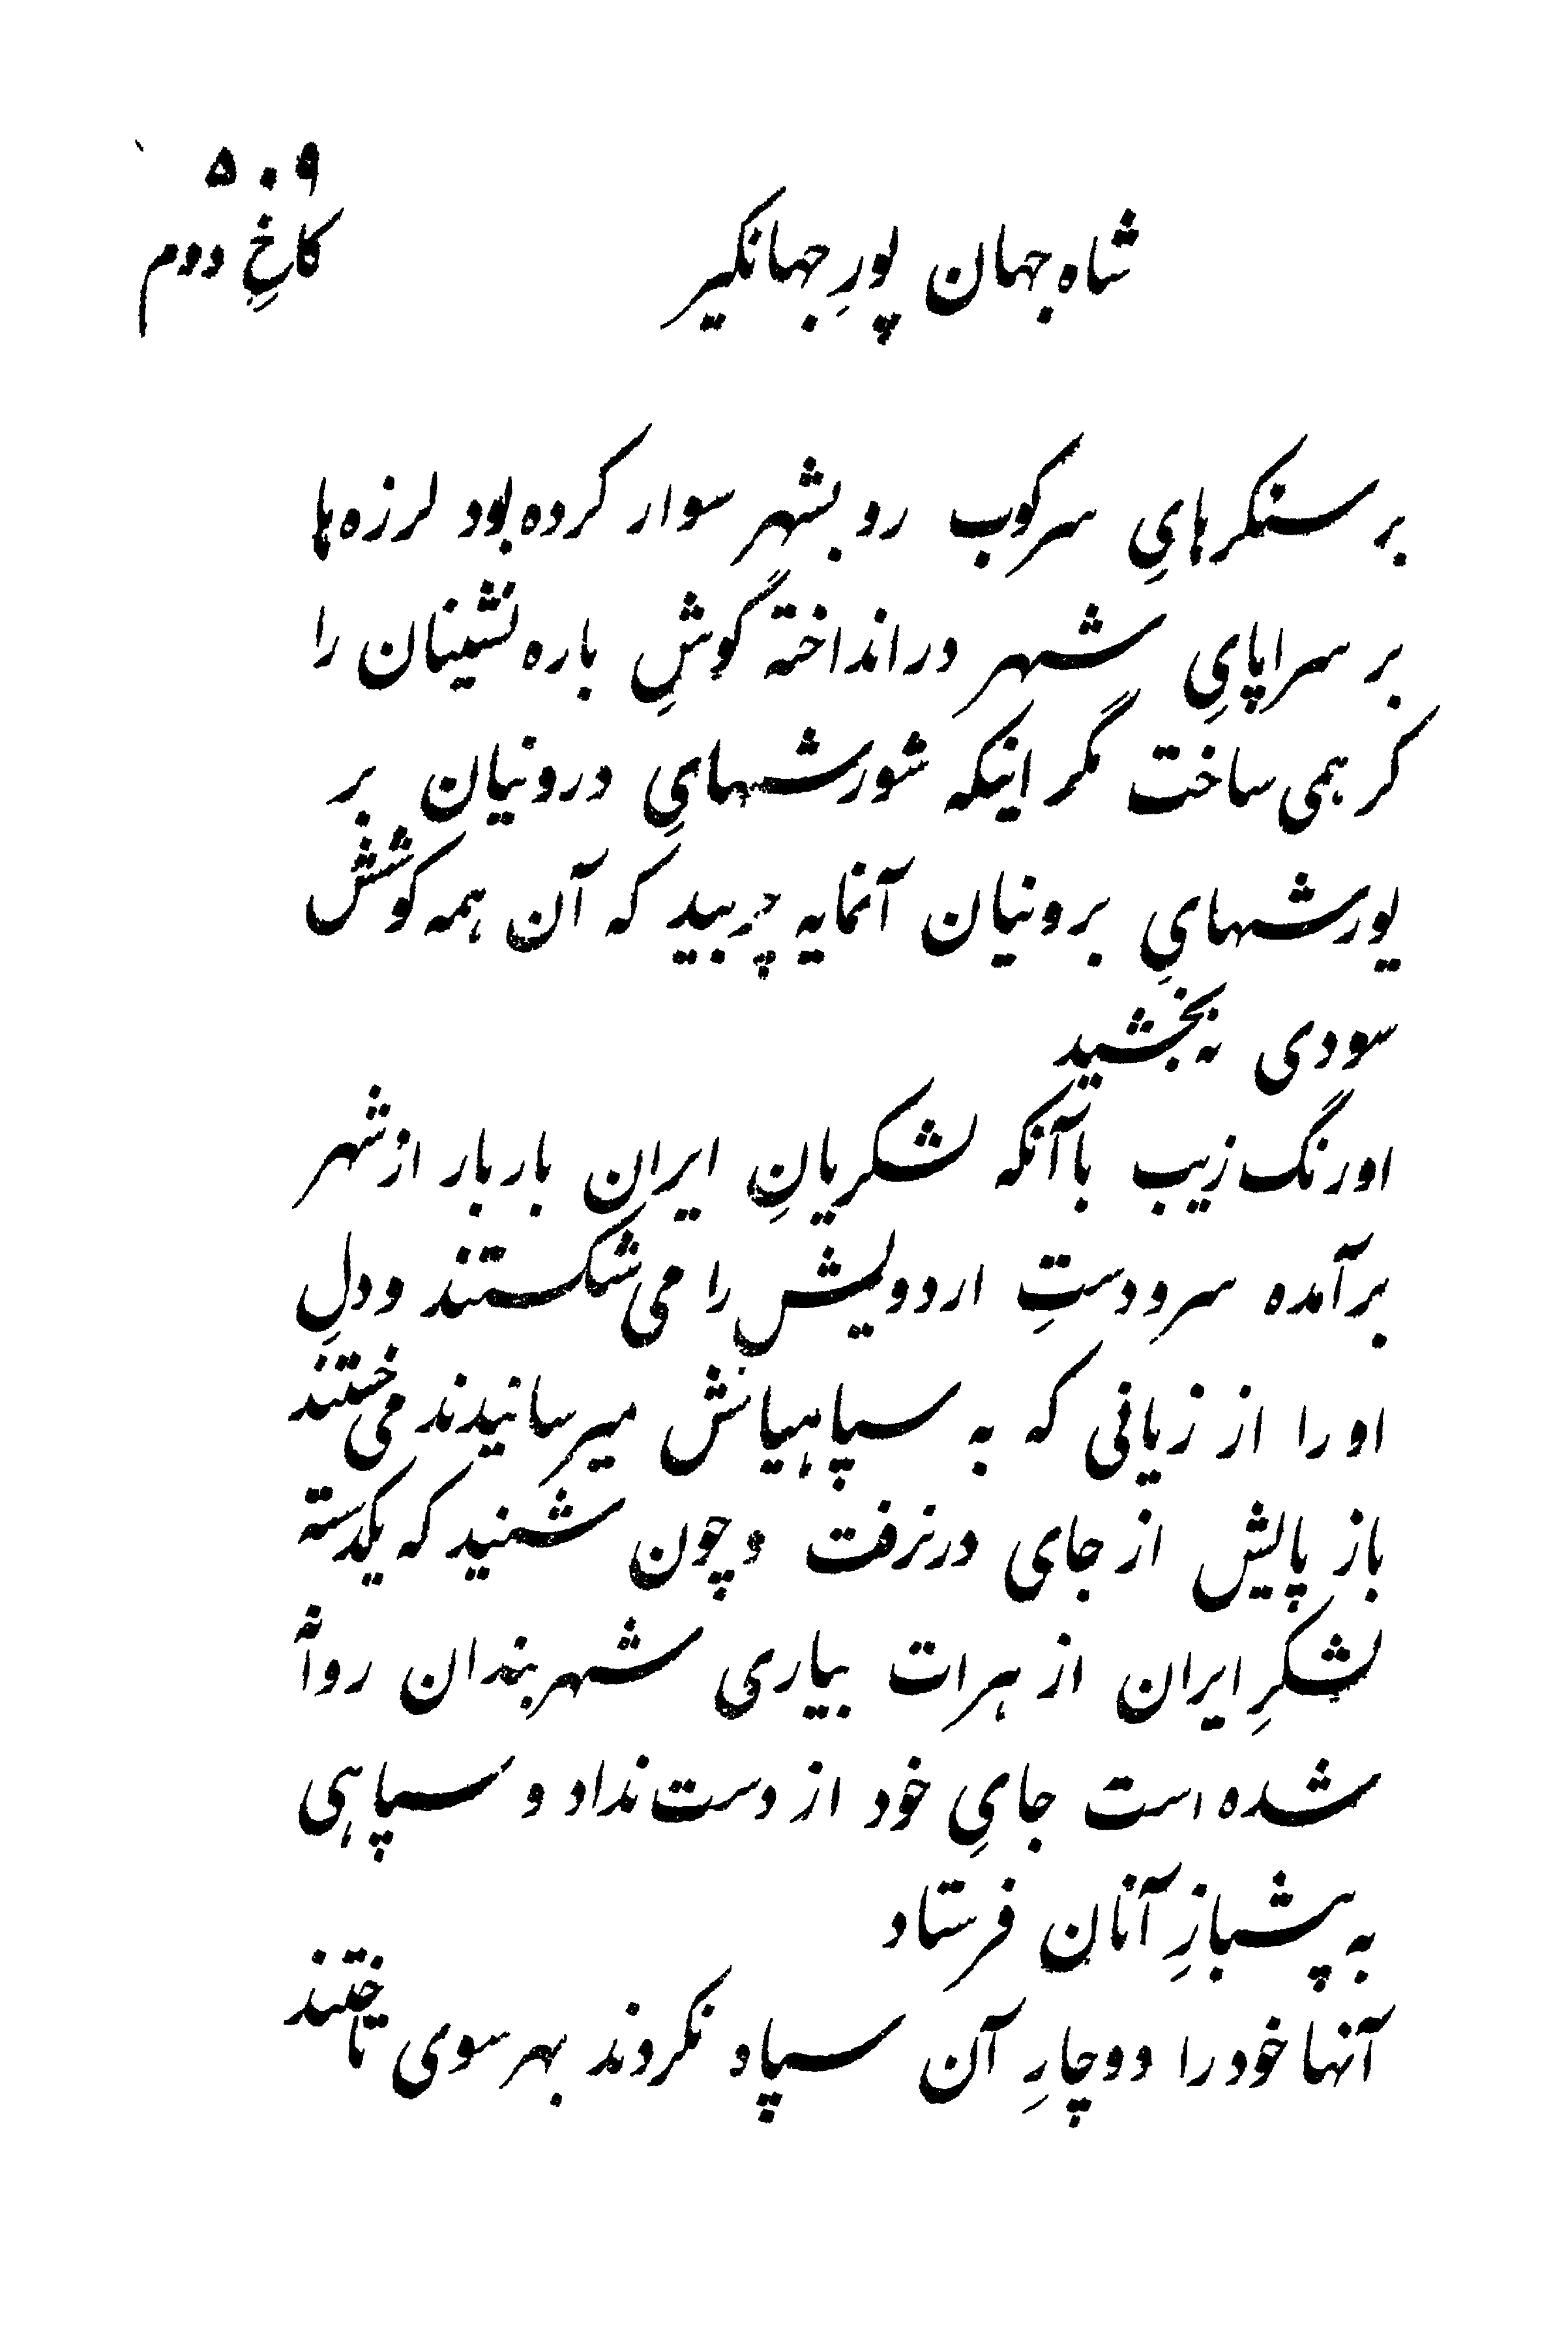 ۵۰۹
شاه جهان پورِ جهانگیر
کاخِ دوم
بر سنگرهایِ سرکوب رو بشهر سوار کرده بود لرزه ها
بر سراپایِ شهر در انداخته گوشِ باره نشینان را
کر همی ساخت مگر اینکه شورشهایِ درونیان بر
یورشهایِ برونیان آنمایه چربید که آن همه کوشش
سودی نه بخشید
اورنگ زیب با آنکه لشکریانِ ایران بار بار از شهر
برآمده سر و دستِ اردویش را می شکستند و دلِ
او را از زیانی که به سپاهیانش میرسانیدند می خستند
باز پایش از جای در نرفت و چون شنید که یکدسته
لشکرِ ایران از هرات بیاری شهر بندان روانه
شده است جایِ خود از دست نداد و سپاهی
به پیشبازِ آنان فرستاد
آنها خود را دوچارِ آن سپاه نکردند بهر سوی تاختند